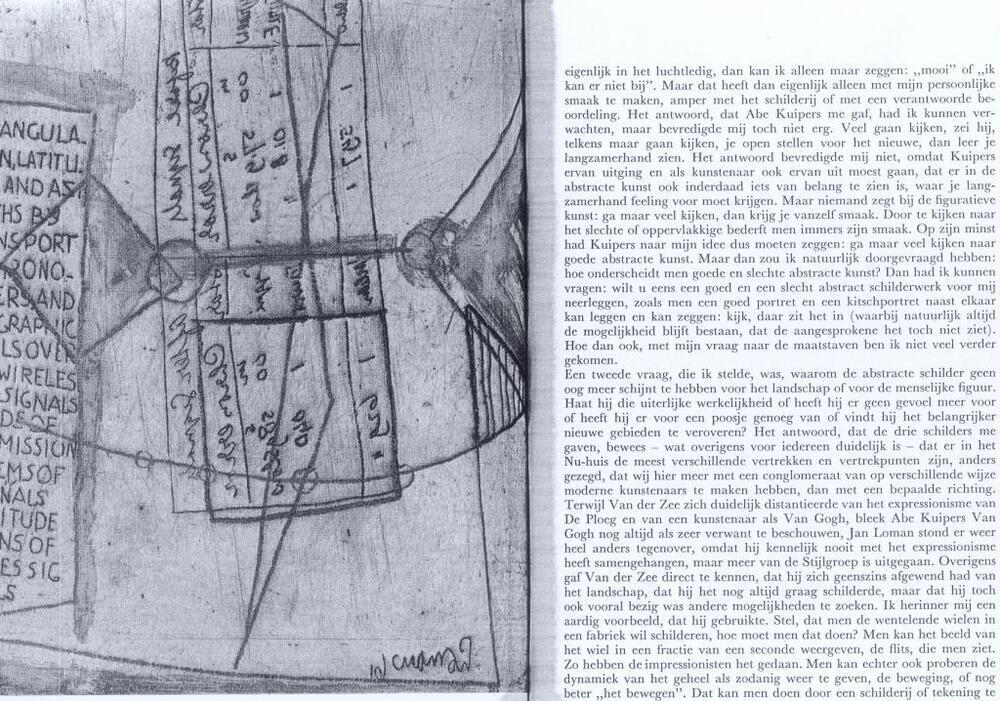 ANGULA.
N,LATITU.
AND AS
THS BY
NSPORT
RONO-
ERSAND
GRAPHIC
LSOVER
WIRELES
SIGNALS
DS OF
MISSION
EMSOF
NALS
ITUDE
NS OF
ES SIG
LS
eigenlijk in het luchtledig, dan kan ik alleen maar zeggen: „mooi” of „ik
kan er niet bij”. Maar dat heeft dan eigenlijk alleen met mijn persoonlijke
smaak te maken, amper met het schilderij of met een verantwoorde be-
oordeling. Het antwoord, dat Abe Kuipers me gaf, had ik kunnen ver-
wachten, maar bevredigde mij toch niet erg. Veel gaan kijken, zei hij,
telkens maar gaan kijken, je open stellen voor het nieuwe, dan leer je
langzamerhand zien. Het antwoord bevredigde mij niet, omdat Kuipers
ervan uitging en als kunstenaar ook ervan uit moest gaan, dat er in de
abstracte kunst ook inderdaad iets van belang te zien is, waar je lang-
zamerhand feeling voor moet krijgen. Maar niemand zegt bij de figuratieve
kunst: ga maar veel kijken, dan krijg je vanzelf smaak. Door te kijken naar
het slechte of oppervlakkige bederft men immers zijn smaak. Op zijn minst
had Kuipers naar mijn idee dus moeten zeggen: ga maar veel kijken naar
goede abstracte kunst. Maar dan zou ik natuurlijk doorgevraagd hebben:
hoe onderscheidt men goede en slechte abstracte kunst? Dan had ik kunnen
vragen: wilt u eens een goed en een slecht abstract schilderwerk voor mij
neerleggen, zoals men een goed portret en een kitschportret naast elkaar
kan leggen en kan zeggen: kijk, daar zit het in (waarbij natuurlijk altijd
de mogelijkheid blijft bestaan, dat de aangesprokene het toch niet ziet).
Hoe dan ook, met mijn vraag naar de maatstaven ben ik niet veel verder
gekomen.
Een tweede vraag, die ik stelde, was, waarom de abstracte schilder geen
oog meer schijnt te hebben voor het landschap of voor de menselijke figuur.
Haat hij die uiterlijke werkelijkheid of heeft hij er geen gevoel meer voor
of heeft hij er voor een poosje genoeg van of vindt hij het belangrijker
nieuwe gebieden te veroveren? Het antwoord, dat de drie schilders me
gaven, bewees – wat overigens voor iedereen duidelijk is – dat er in het
Nu-huis de meest verschillende vertrekken en vertrekpunten zijn, anders
gezegd, dat wij hier meer met een conglomeraat van op verschillende wijze
moderne kunstenaars te maken hebben, dan met een bepaalde richting.
Terwijl Van der Zee zich duidelijk distantieerde van het expressionisme van
De Ploeg en van een kunstenaar als Van Gogh, bleek Abe Kuipers Van
Gogh nog altijd als zeer verwant te beschouwen, Jan Loman stond er weer
heel anders tegenover, omdat hij kennelijk nooit met het expressionisme
heeft samengehangen, maar meer van de Stijlgroep is uitgegaan. Overigens
gaf Van der Zee direct te kennen, dat hij zich geenszins afgewend had van
het landschap, dat hij het nog altijd graag schilderde, maar dat hij toch
ook vooral bezig was andere mogelijkheden te zoeken. Ik herinner mij een
aardig voorbeeld, dat hij gebruikte. Stel, dat men de wentelende wielen in
een fabriek wil schilderen, hoe moet men dat doen? Men kan het beeld van
het wiel in een fractie van een seconde weergeven, de flits, die men ziet.
Zo hebben de impressionisten het gedaan. Men kan echter ook proberen de
dynamiek van het geheel als zodanig weer te geven, de beweging, of nog
beter „het bewegen”. Dat kan men doen door een schilderij of tekening te